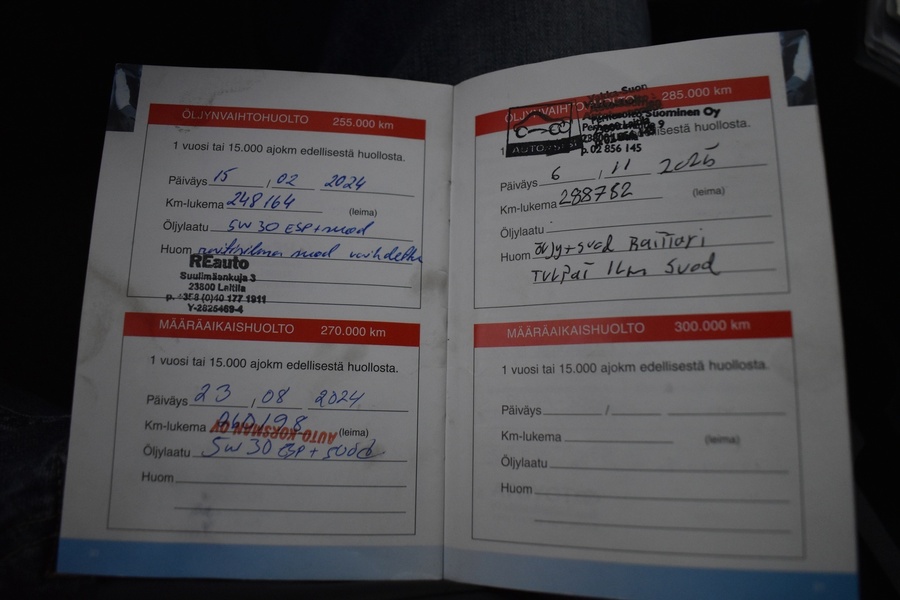 ÖLJYNVAIHTOHUOLTO 255.000 km
1 vuosi tai 15.000 ajokm edellisestä huollosta.
Päiväys 15 , 02 2024
Km-lukema 248164 (leima)
Öljylaatu 5W30 ESP + suod
Huom raitisilma suod vaihdettu
REauto
Suulimäenkuja 3
23800 Laitila
p. +358 (0)40 177 1911
Y-2825469-4
MÄÄRÄAIKAISHUOLTO 270.000 km
1 vuosi tai 15.000 ajokm edellisestä huollosta.
Päiväys 23 , 08 2024
Km-lukema (leima)
AUTO KORSMAN OY
Öljylaatu 5W30 ESP + suod
Huom
ÖLJYNVAIHTOHUOLTO 285.000 km
Suominen Oy
p. 02 856 145
huollosta.
Päiväys 6 , 11 2025
Km-lukema 288782 (leima)
Öljylaatu
Huom öljy + suod Raitisri
Tulpat Ilm Suod
MÄÄRÄAIKAISHUOLTO 300.000 km
1 vuosi tai 15.000 ajokm edellisestä huollosta.
Päiväys /
Km-lukema (leima)
Öljylaatu
Huom